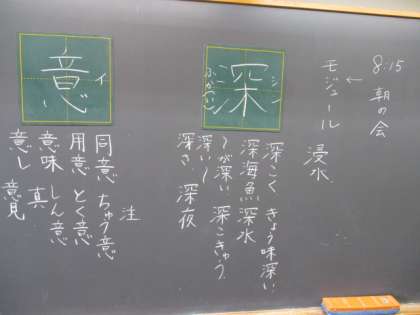 8:15 朝の会
↓
モジュール
浸水
深
シン
ふか(い)
深こく きょう味深い
深海魚 深水
〜が深い 深こきゅう
深い〜
深さ 深夜
意
イ
注
同意 ちゅう意
用意 とく意
意味 しん意
真
意し 意見